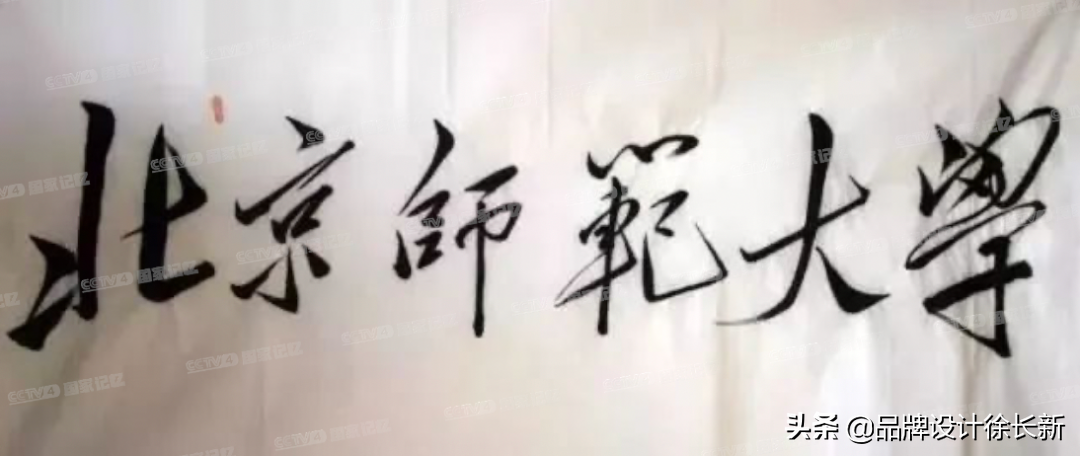 北京師範大學
CCTV4 国家记忆
头条 @品牌设计徐长新